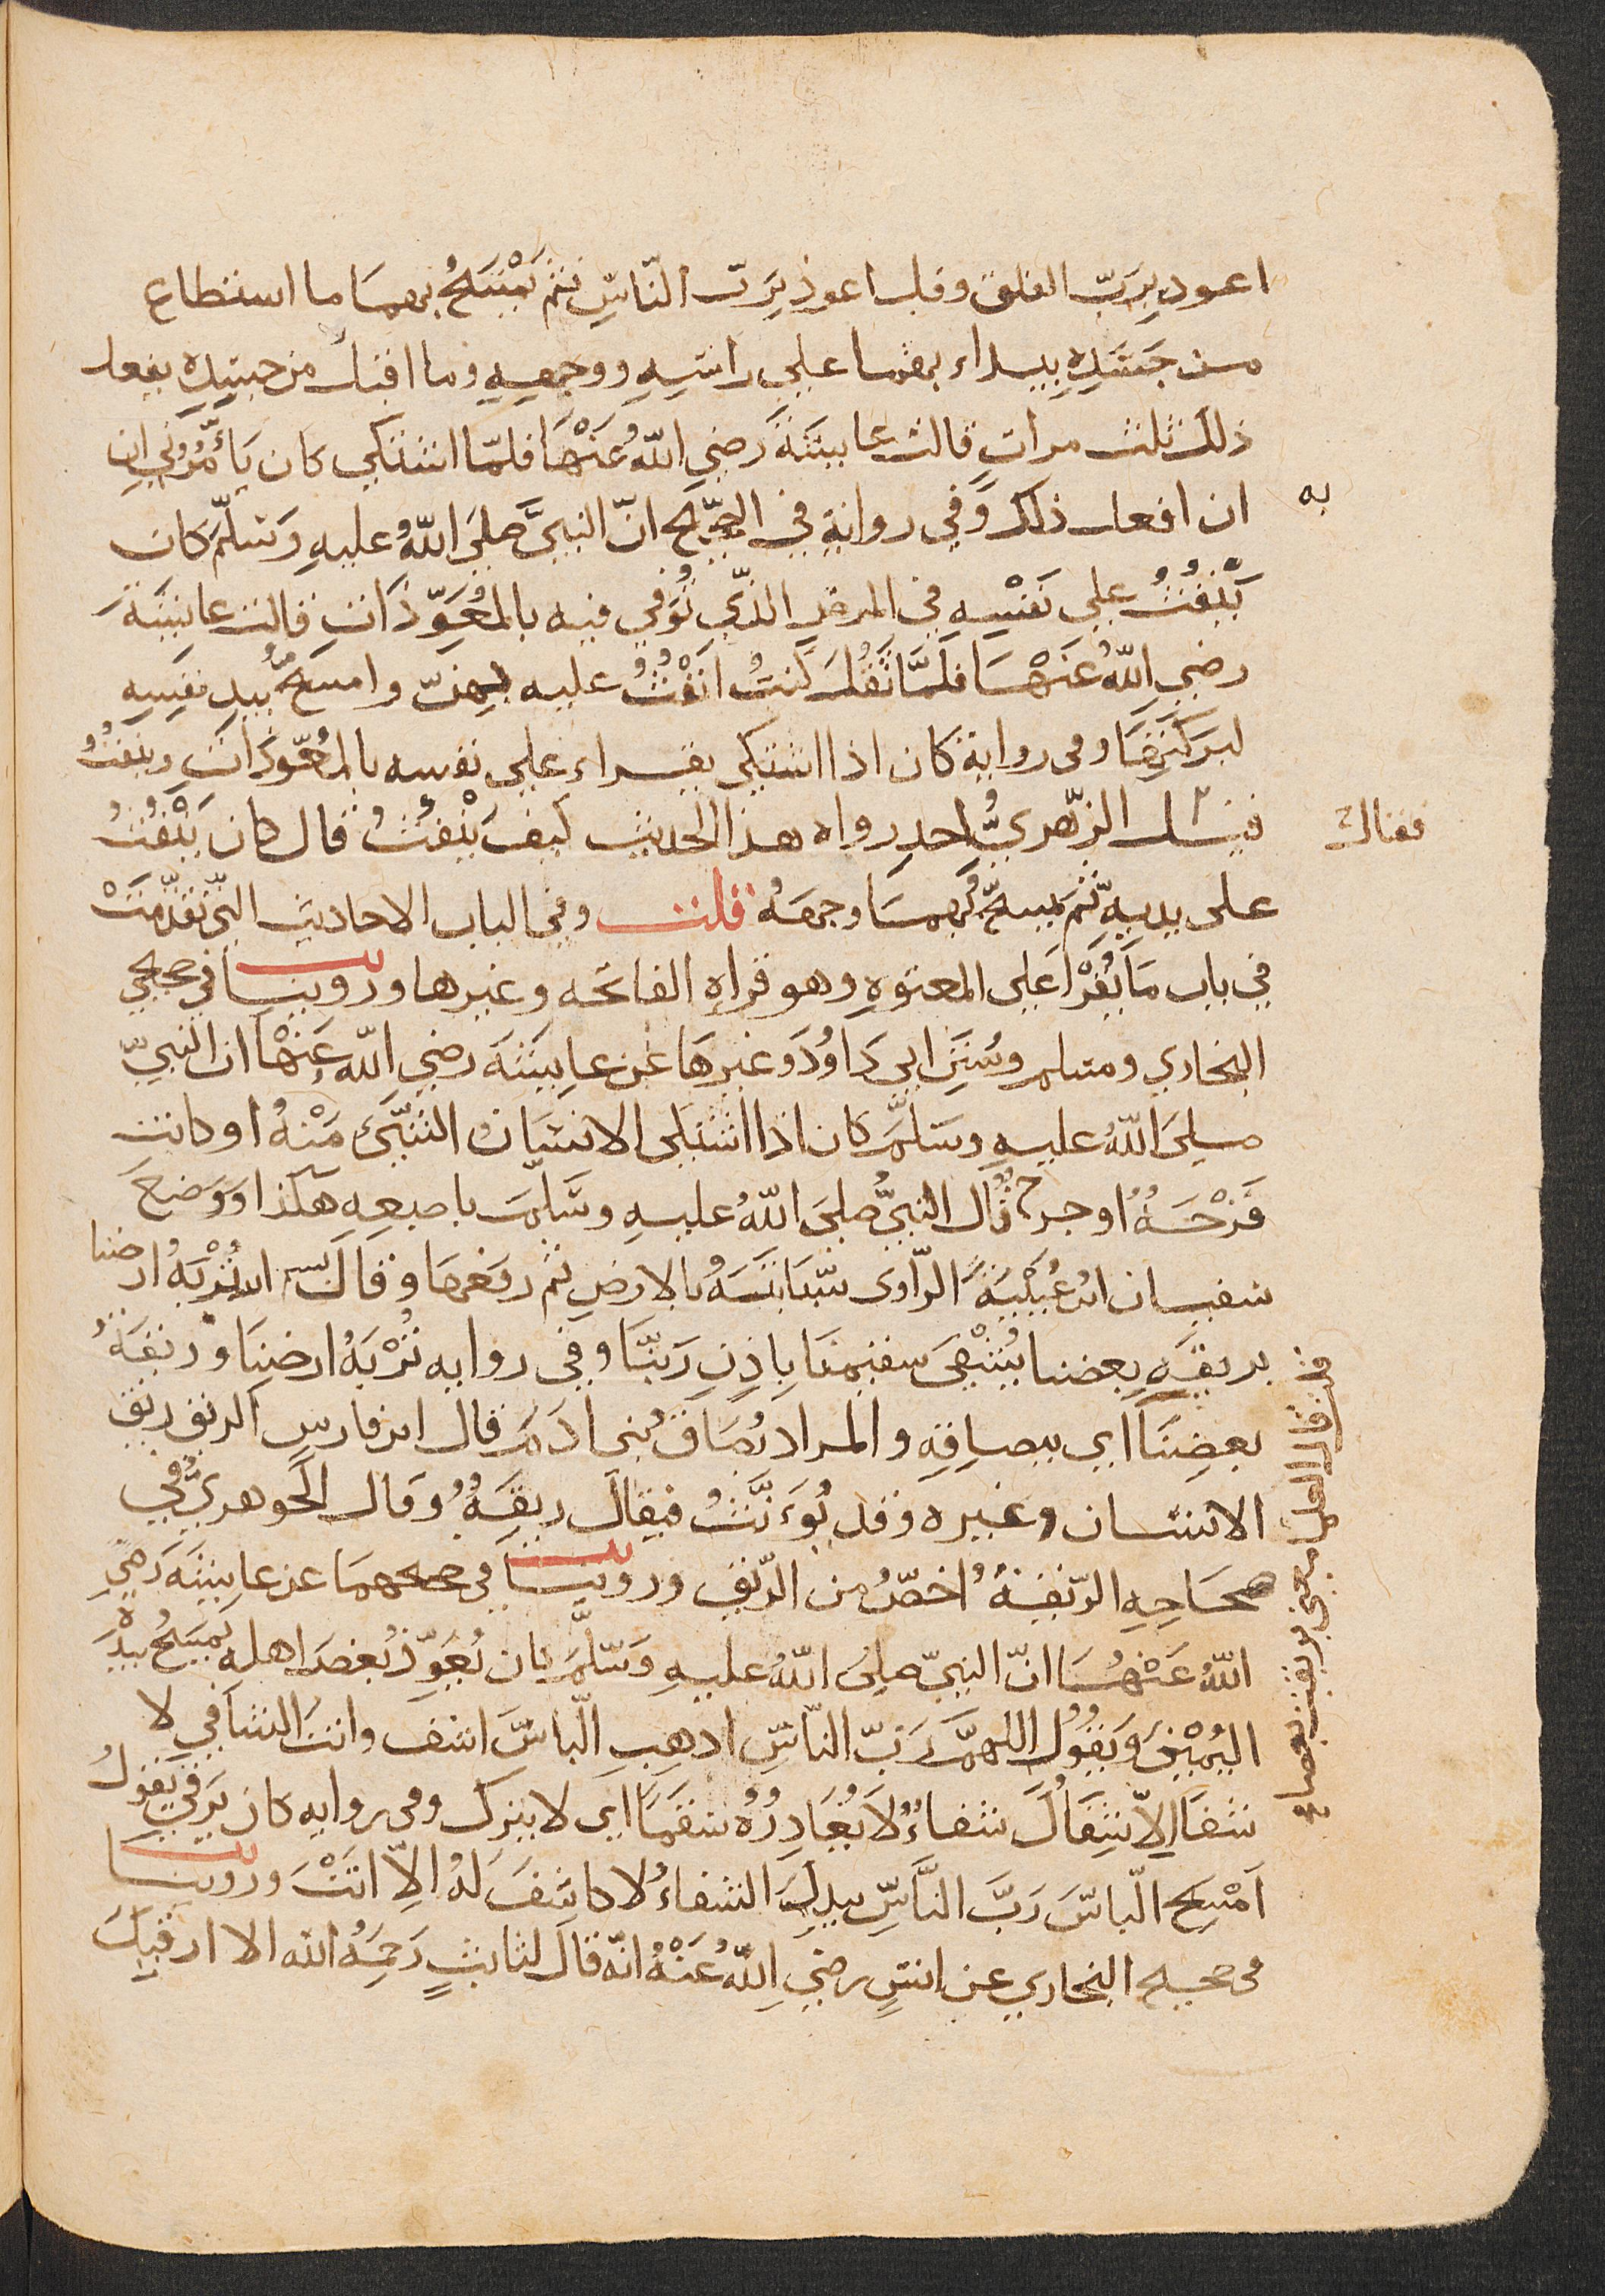 اعوذ بِرَبّ الفلق وقل اعوذ بِرَبّ النّاسِ ثم يَمْسَحُ بهمَا ما استطاع
من جَسَدِهِ يبداء بهما علي راسِهِ ووجهِهِ وما اقبل من جسدِهِ يفعل
ذلك ثلث مرات قالت عايشَةَ رَضِي اللّهُ عَنْهَا فلمّا اشتكي كان يَأمُرُني ان
ان افعل ذلك وَفي رواية في الصّحيح انّ النبيَّ صَلّيَ اللّهُ عليهِ وَسَلّمَ كان
به
يَنْفُثُ علي نَفْسِهِ في المرض الذّي تُوَفي فيه بالمُعَوّذَات قالت عايشَةَ
رضي اللّهُ عَنْهَا فلَمَّا ثَقُلَ كُنتُ انْفُثُ عليه بهنّ وامسَحُ بيد نفسِهِ
لبَركَتِهَا وفى رواية كان اذا اشتكى يقراء علي نفسه بالمُعَوّذَات وينفثُ
قيل للزّهريّ احدِ رواه هذا الحديث كيف يَنْفثُ قال كان يَنْفُثُ
فقال
على يديهِ ثمّ يمسحُ بهمَا وجهَهُ قلت وفي الباب الاحاديث التي تقدّمَتْ
في باب مَا يُقرَأ علي المعتوهِ وهو قراه الفاتحه وغيرها وروينا في صحيحي
البخاري ومسلم وسُنَنِ ابي دَاوُدَ وغيرهَا عَن عايشَةَ رضي اللّه عَنْهَا ان النبيّ
صليَ اللّهُ عليهِ وسَلّمَ كان اذا اشتكى الانسَانُ الشّيَ مِنْهُ او كانت
قَرْحَةٌ او جرح قال النبيُّ صَليَ اللّهُ عليهِ وسَلّمَ باصبعِهِ هكذا وَوَضعَ
سفيان ابن عُيَيْنَةَ الرّاوى سَبّابَتَهُ بالارضِ ثم رفعهَا وقال بسم الله تُرْبَةُ ارضنا
بريقَةِ بعضنا يُشْفيَ سقيمنَا بِاذِنِ رَبّنَا وفي روايه تُرْبَةُ ارضِنَا وريقَةُ
بعضِنَا اي ببصاقِهِ والمراد بُصَاق بُنى ادَمَ قال ابن فارس الريق ريق
قلت قال العلما معني بريقة بعضنا
الانسَان وغيره وقد يُوءَنّثُ فيقَال ريقَةٌ وقال الجَوهريّ في
صحَاحِهِ الرّيقةُ اخصّ من الرّيق وروينا في صحيحهمَا عن عايشَةَ رَضي
اللّهُ عَنْهَا انّ النبيّ صلي اللّهُ عليهِ وَسَلّمَ كان يُعَوّذُ بَعْضَ اهله يَمسَحُ بيَدِه
اليُمْنَى وَيَقُول اللهمَّ رَبّ النّاسِ اذهِبِ الّباسَ اشف وانتَ الشافي لا
شفَا الِاّ شِفاُكَ شفاءً لَا يُغَادِرُ سَقَمًا اي لا يترك وفى روايه كان يَرقي يَقولُ
اَمْسَحِ الّباسَ رَبَّ النَّاسِ بيدِكَ الشفاءُ لا كاشفَ لَهُ الِاّ انَتْ وروينا
فى صحيح البخاري عن انسٍ رضي اللّهُ عَنْهُ انّه قال لثابتٍ رَحِمَهُ اللّه الا ارقيكَ